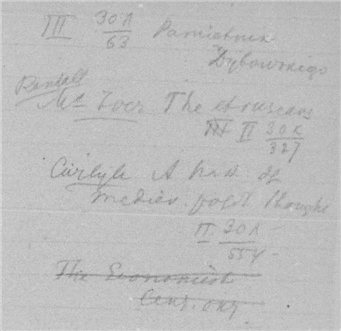 III 30A/63 Pamiętnik
Dybowskiego
Randall
Mc Iver The etruscans
III II 30K/327
Carlyle A hist. of
mediev. polit. thought
II 30A/554
The Economist